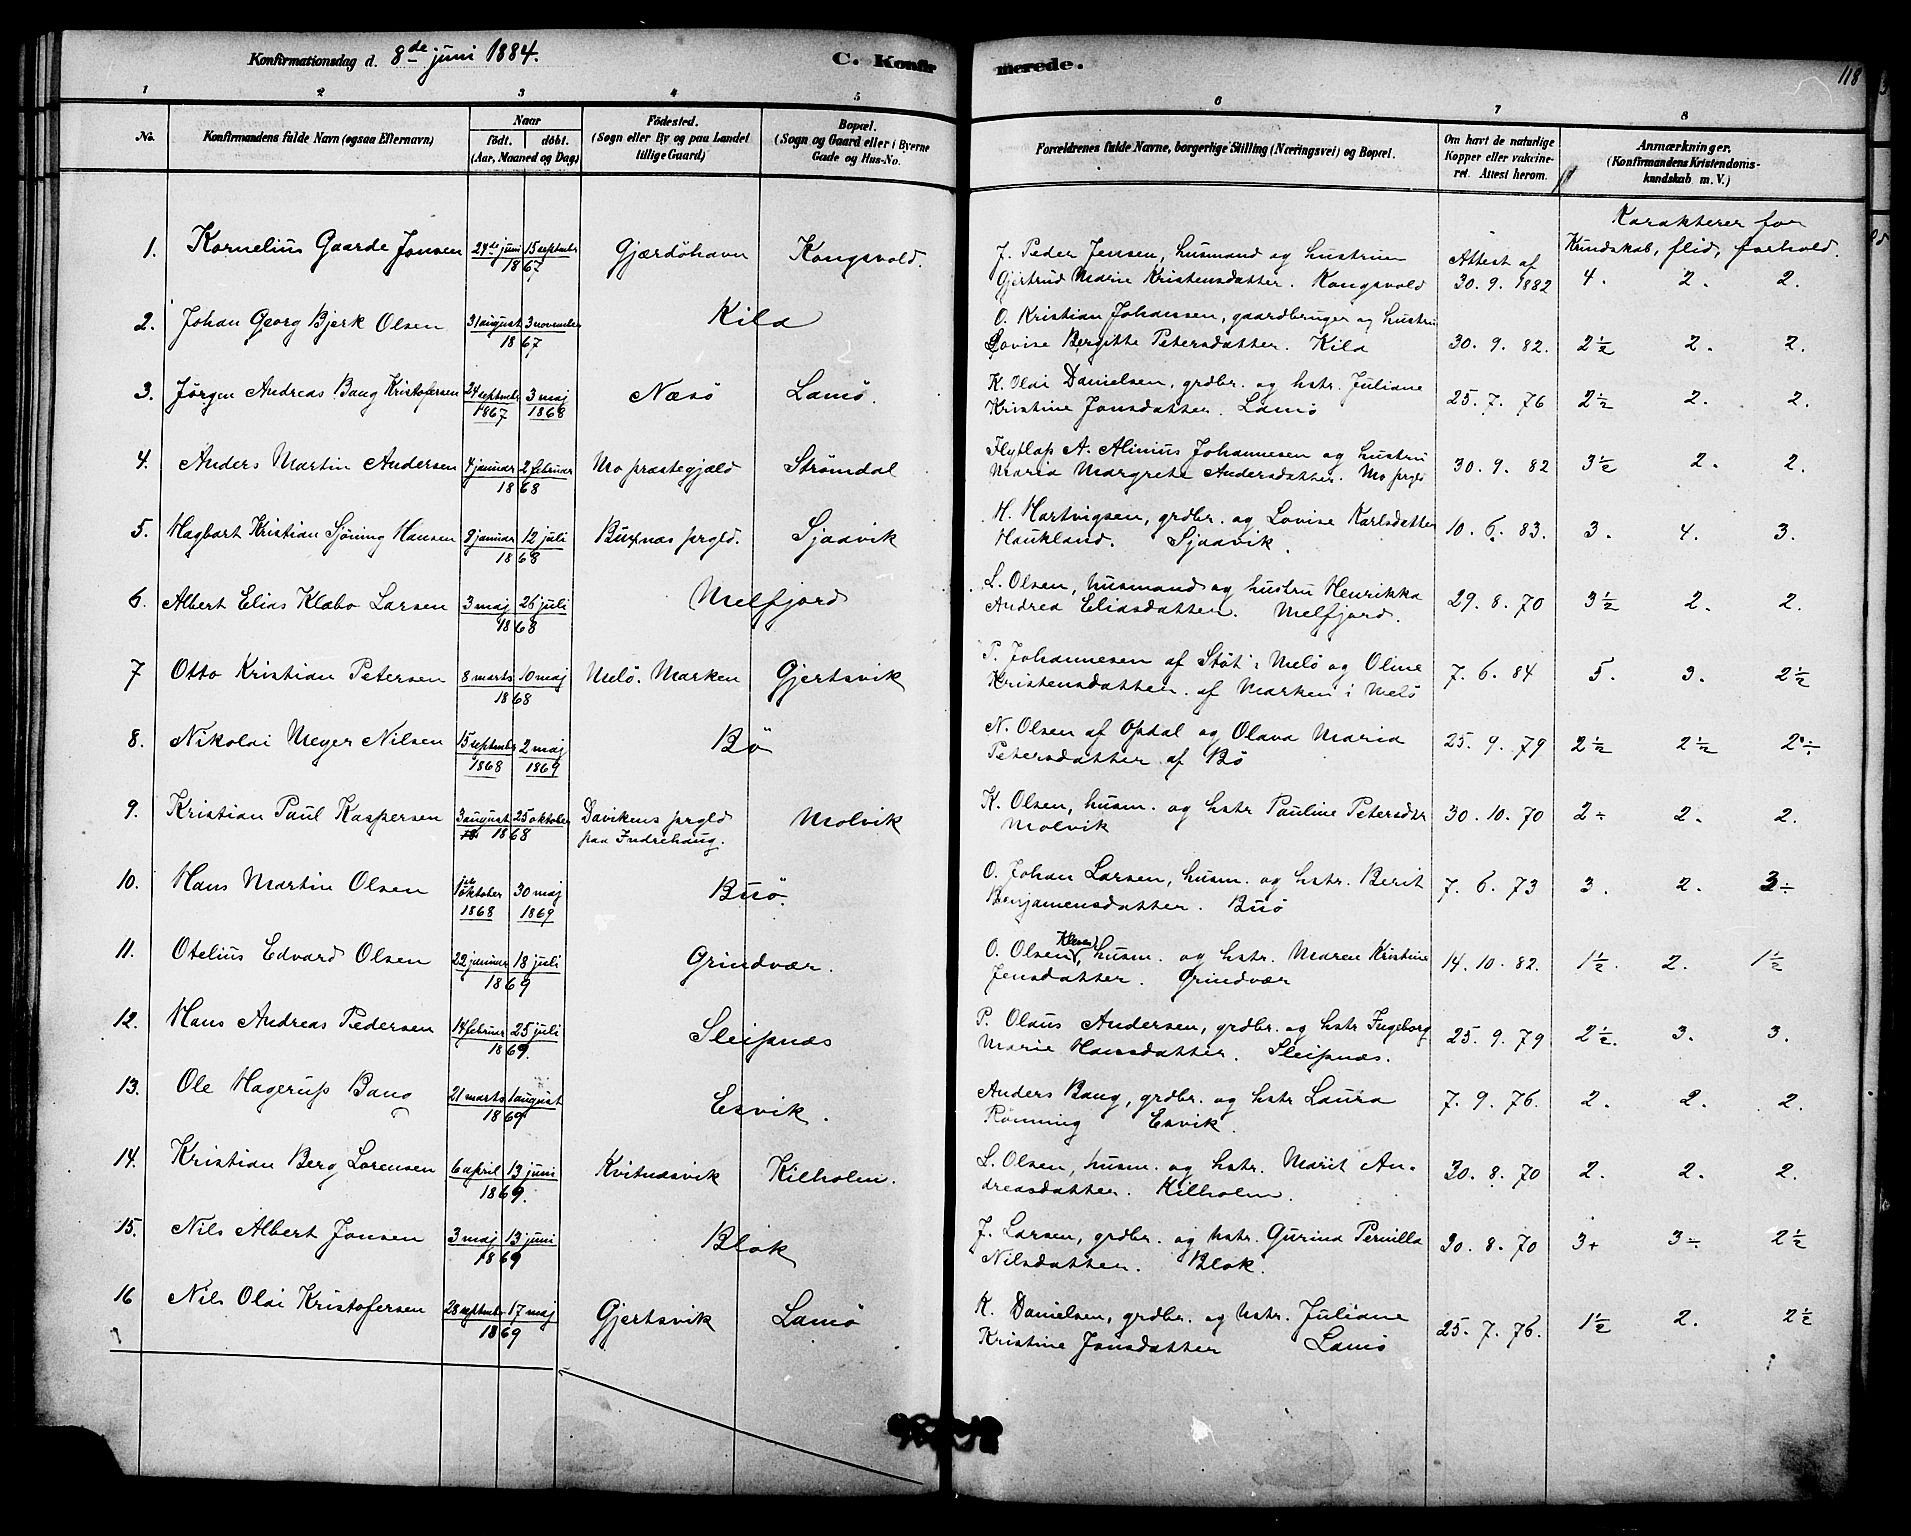 Konfirmationsdag d. 8de juni 1884.
C. Konfirmerede.
118
1 2 3 4 5 6 7 8
No.
Konfirmandens fulde Navn (ogsaa Efternavn)
Naar
født. døbt.
(Aar, Maaned og Dag)
Fødested.
(Sogn eller By og paa Landet
tillige Gaard)
Bopæl.
(Sogn og Gaard eller i Byerne
Gade og Hus-No.
Forældrenes fulde Navne, borgerlige Stilling (Næringsvei) og Bopæl.
Om havt de naturlige
Kopper eller vakcine-
ret. Attest herom.
Anmærkninger.
(Konfirmandens Kristendoms-
kundskab m. V.)
Karakterer for
Kundskab, flid, forhold.
1. Kornelius Gaarde Jensen 24de juni 15 septembr Gjærdöhavn Kongsvold. J. Peder Jensen, husmand og hustrun Attest af
1867 Gjertrud Marie Kristensdatter. Kongsvold 30. 9. 1882 4. 2. 2.
2. Johan Georg Bjerk Olsen 31 august 3 november Kila O. Kristian Johansen, gaardbruger og hustru
1867 Lovise Bergitte Petersdatter. Kila 30. 9. 82. 2½ 2. 2.
3. Jørgen Andreas Bang Kristofersen 24 septembr 3 maj Næsö Lamö. K. Olai Danielsen, grdbr. og hstr. Juliane
1867 1868 Kristine Jonsdatter. Lamö 25. 7. 76 2½ 2. 2.
4. Anders Martin Andersen 4 januar 2 februar Mo præstegjæld Strömdal Flytlap A. Alinius Johannesen og hustru
1868 Maria Margrete Andersdatter. Mo prgld 30. 9. 82 3½ 2. 2.
5. Hagbart Kristian Sjöning Hansen 9 januar 12 juli Buxnæs prgld. Sjaavik H. Hartvigsen, grdbr. og Lovise Karlsdatter
1868 Haukland. Sjaavik. 10. 6. 83. 3. 4. 3.
6. Albert Elias Klæbo Larsen 3 maj 26 juli Melfjord L. Olsen, husmand og hustru Henrikka
1868 Andrea Eliasdatter. Melfjord. 29. 8. 70 3½ 2. 2.
7 Otto Kristian Petersen 8 marts 10 maj Melö. Marken Gjertsvik P. Johannesen af Stöt i Melö og Oline
1868 Kristensdatter. af Marken i Melö 7. 6. 84 5. 3. 2½
8. Nikolai Meyer Nilsen 15 septembr 2 maj Bö N. Olsen af Opdal og Olava Maria
1868 1869 Petersdatter af Bö 25. 9. 79 2½ 2½ 2÷
9. Kristian Paul Kaspersen 3 august 25 oktober Davikens prgld Molvik K. Olsen, husm. og hstr Pauline Petersdtr
1868 paa Indrehaug. Molvik 30. 10. 70 2÷ 2. 2.
10. Hans Martin Olsen 1ste oktober 30 maj Buö. O. Johan Larsen, husm. og hstr. Berit
1868 1869 Benjamensdatter. Buö 7. 6. 73 3. 2. 3÷
11. Otelius Edvard Olsen 22 januar 18 juli Grindvær. O. Olsen husm. og hstr. Maren Kristine
1869 Jensdatter. Grindvær 14. 10. 82. 1½. 2. 1½
12. Hans Andreas Pedersen 14 februar 25 juli Sleipnæs P. Olaus Andersen, grdbr. og hstr Ingeborg
1869. Marie Hansdatter. Sleipnæs. 25. 9. 79 2½. 3. 3.
13. Ole Hagerup Bang 21 marts 1 august Esvik. Anders Bang, grdbr. og hstr Laura
1869 Rönning Esvik. 7. 9. 76. 2. 2. 2.
14. Kristian Berg Lorensen 6 april 13 juni Kvitnæsvik Kilholm. L. Olsen, husm. og hstr. Marit An-
1869. dreasdatter. Kilholm. 30. 8. 70 2. 2. 2.
15. Nils Albert Jonsen 3 maj 13 juni Blok J. Larsen, grdbr. og hstr. Gurina Pernilla
1869 Nilsdatter. Blok. 30. 8. 70 3+ 3÷ 2½
16 Nils Olai Kristofersen 28 septembr 17 maj Gjertsvik Lamö K. Danielsen, grdbr. og hstr. Juliane
1869 Kristine Jonsdatter Lamö 25. 7. 76. 1½ 2. 2½